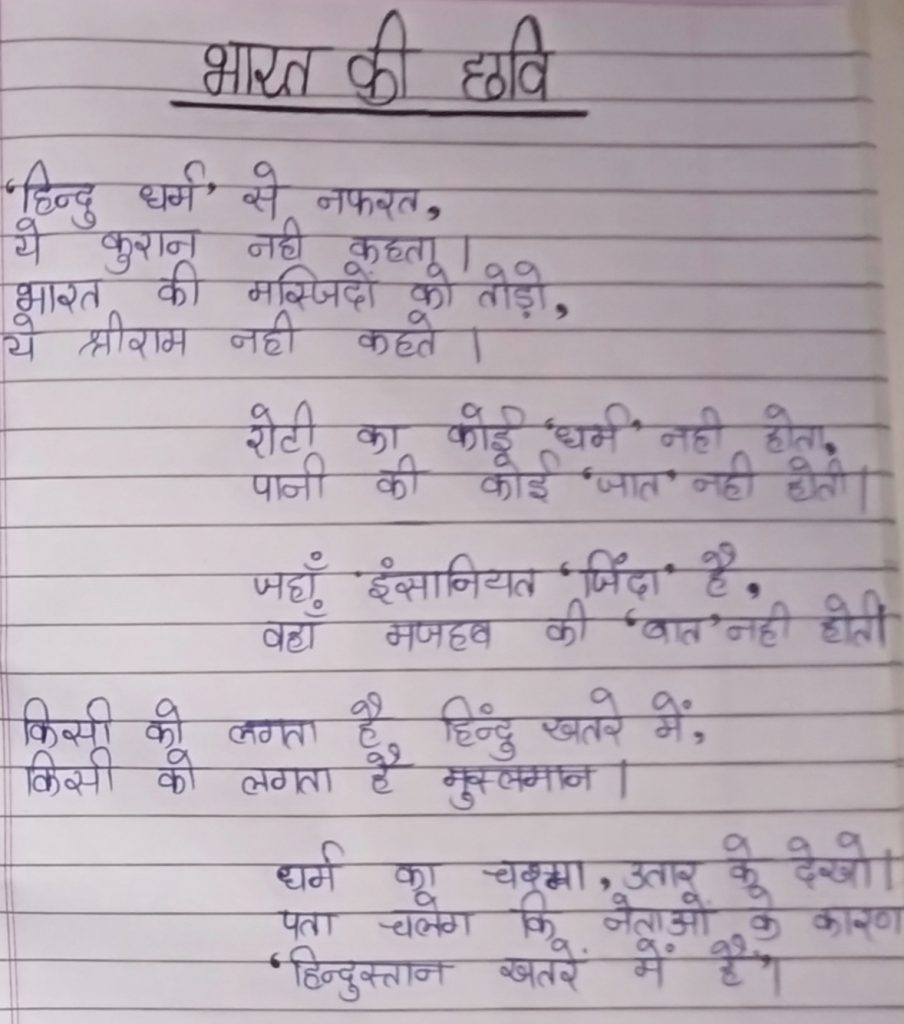 भारत की छवि
'हिन्दु धर्म' से नफरत,
ये कुरान नही कहता।
भारत की मस्जिदों को तोड़ो,
ये श्रीराम नही कहते।
रोटी का कोई 'धर्म' नही होता,
पानी की कोई 'जात' नही होती।
जहाँ इंसानियत 'जिंदा' है,
वहाँ मजहब की 'बात' नही होती
किसी को लगता है हिंदु खतरे में,
किसी को लगता है मुस्लमान।
धर्म का चश्मा, उतार के देखो।
पता चलेग कि नेताओं के कारण
'हिन्दुस्तान खतरें में है'।